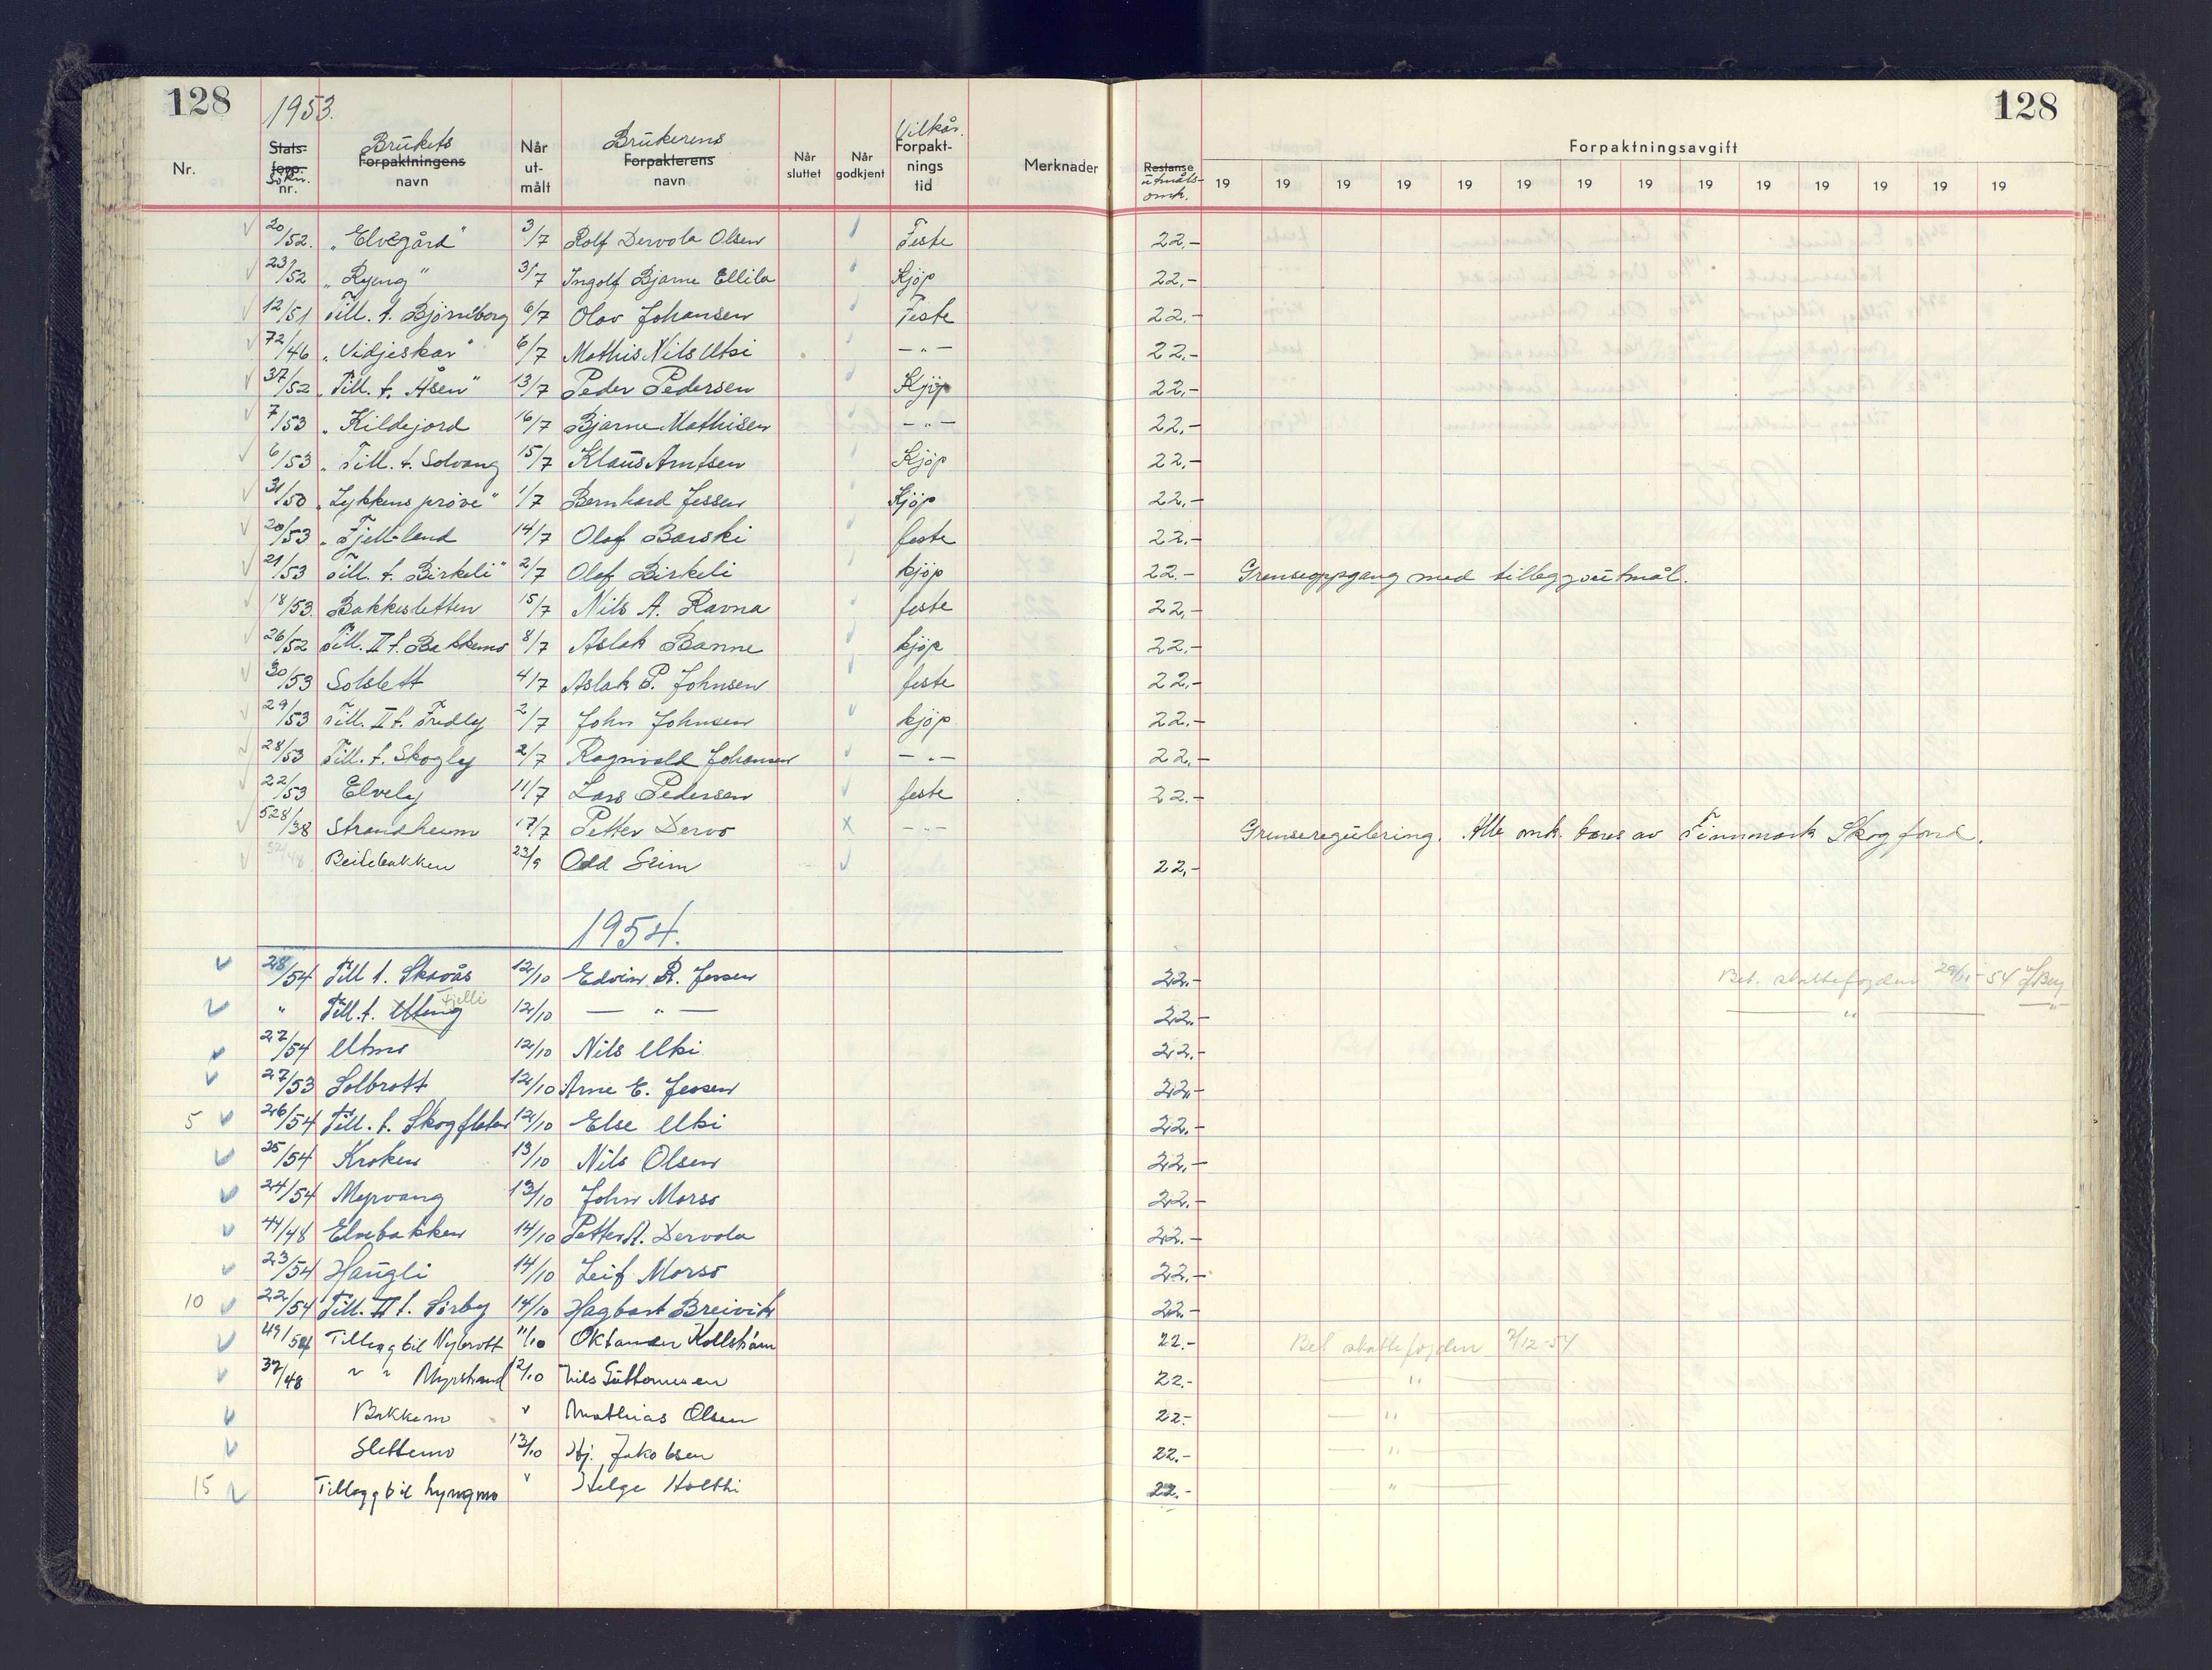 128 1953. 128
Nr. Stats-forp. Søkn. nr. Brukets Forpaktningens navn Når ut-målt Brukerens Forpakterens navn Når sluttet Når godkjent Vilkår. Forpakt-nings tid Merknader Restanse utmåls-omk. Forpaktningsavgift
19 19 19 19 19 19 19 19 19 19 19 19 19 19
20/52. "Elvegård" 3/7 Rolf Dervola Olsen Feste 22.-
23/52 "Ryeng" 3/7 Ingolf Bjarne Ellila Kjöp 22.-
12/51 Till. t. Björneborg 6/7 Olav Johansen Feste 22.-
72/46 "Vidjeskar" 6/7 Mathis Nils Utsi -"- 22.-
37/52 "Till. t. Åsen" 13/7 Peder Pedersen Kjöp 22.-
7/53 " Kildejord 16/7 Bjarne Mathisen -"- 22.-
6/53 " Till. t. Solvang 15/7 Klaus Arntsen Kjöp 22.-
31/50 "Lykkens pröve" 1/7 Bernhard Jessen Kjöp 22.-
20/53 " Fjell-lend 14/7 Olaf Barski feste 22.-
21/53 Till. t. Birkeli" 2/7 Olaf Birkeli kjöp 22.- Grenseoppgang med tilleggsutmål.
18/53. Bakkesletten 15/7 Nils A. Ravna feste 22.-
26/52 Till. II t. Bakkemo 8/7 Aslak Banne kjöp 22.-
30/53 Solslett 4/7 Aslak P. Johnsen feste 22.-
29/53 Till. II t. Fredly 2/7 John Johnsen kjöp 22.-
28/53 Till. t. Skogly 2/7 Ragnvald Johansen -"- 22.-
22/53 Elvely 11/7 Lars Pedersen feste 22.-
528/38 Strandheim 17/7 Petter Dervo -"- Grenseregulering. Alle omk. bæres av Finnmark Skogfond.
52/48 Beitebakken 23/9 Odd Seim 22.-
1954.
28/54 Till t. Skavås 12/10 Edvin R. Jessen 22.- Bet. skattefogden 29/11-54
" Till. t. Fjelli 12/10 - " - 22.- - " -
27/54 Utmo 12/10 Nils Utsi 22.-
27/53 Solbrott 12/10 Arne E. Jessen 22.-
5 26/54 Till. t. Skogfleten 12/10 Else Utsi 22.-
25/54 Kroken 13/10 Nils Olsen 22.-
24/54 Myrvang 13/10 John Morso 22.-
44/48 Elvebakken 14/10 Petter A. Dervola 22.-
23/54 Haugli 14/10 Leif Morso 22.-
10 22/54 Till. II t. Sörby 14/10 Hagbart Breivik 22.-
49/54 Tillegg til Nybrott 11/10 Oktander Kollstrøm 22.- Bet skattefogden 7/12-54
37/48 " " Myrstrand 12/10 Nils Guttormsen 22.- - " -
Bakkemo " Mathias Olsen 22.- - " -
Slettemo 13/10 Hj. Jakobsen 22.- - " -
15 Tillegg til Lyngmo " Helge Holthi 22.- - " -